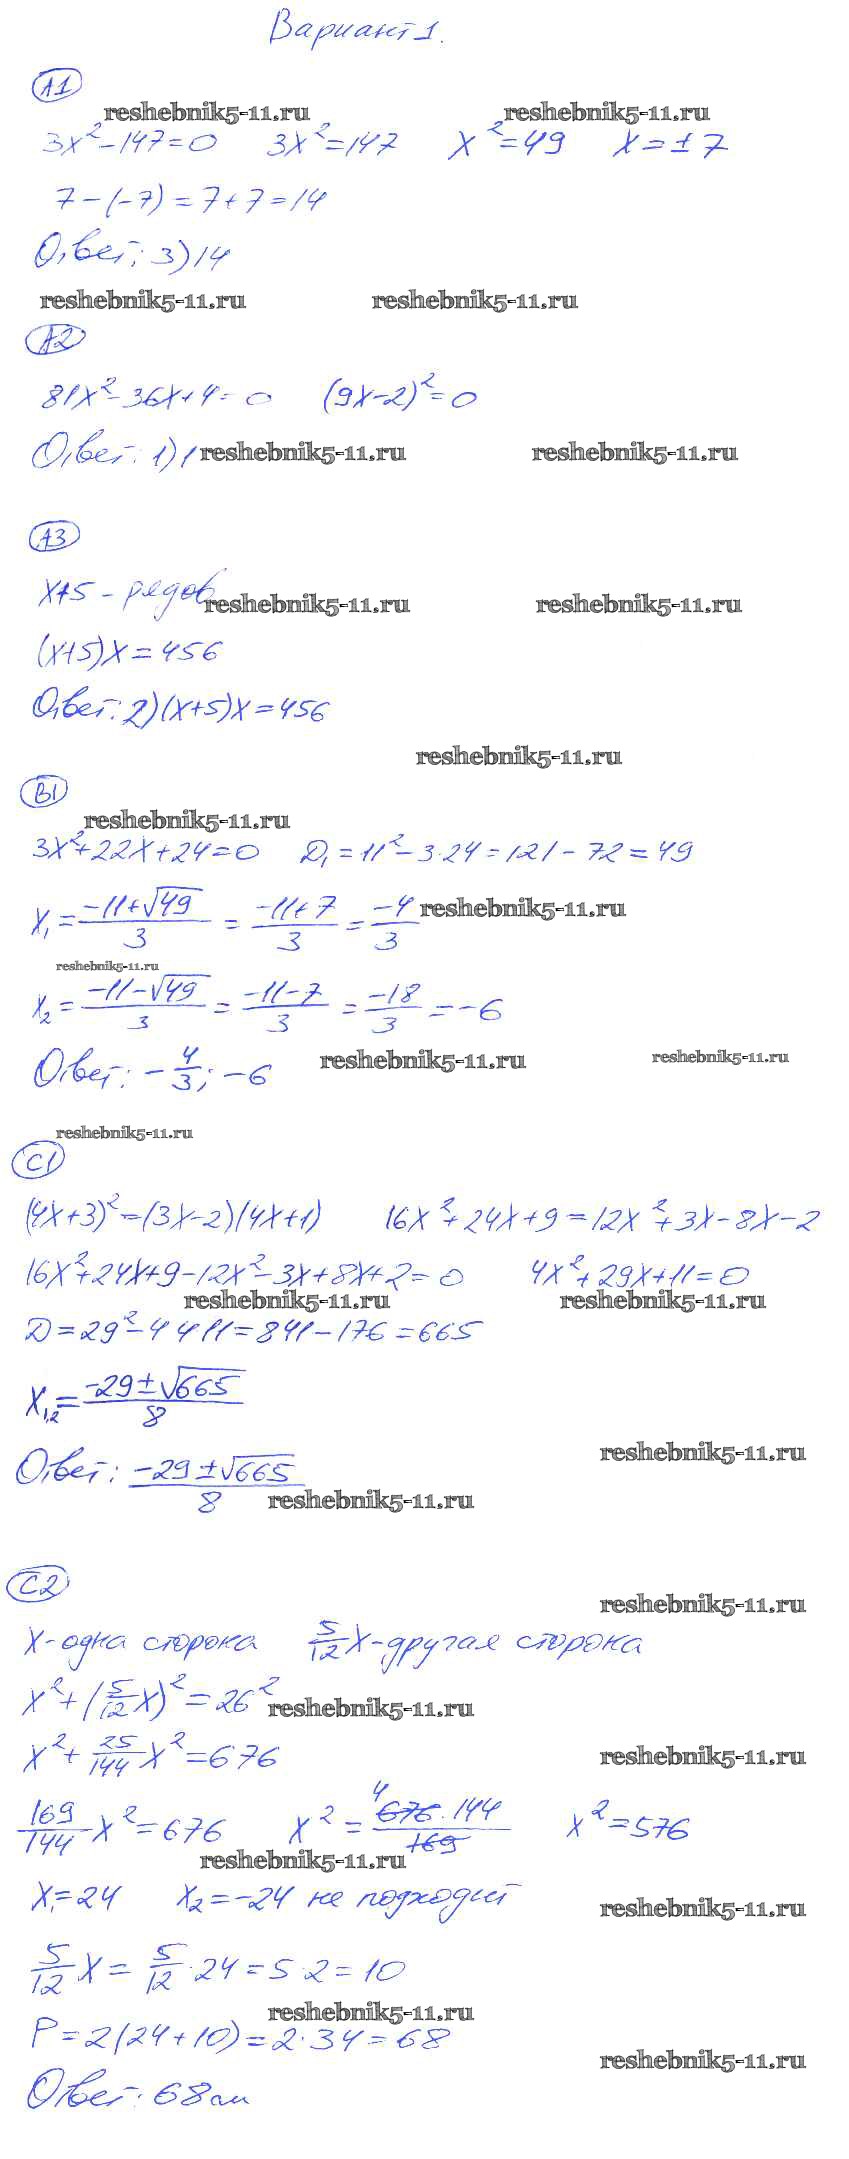 Вариант 1.
А1
reshebnik5-11.ru reshebnik5-11.ru
3x²-147=0 3x²=147 x²=49 x=±7
7-(-7)=7+7=14
Ответ: 3)14
reshebnik5-11.ru reshebnik5-11.ru
А2
81x²-36x+4=0 (9x-2)²=0
Ответ: 1)1 reshebnik5-11.ru reshebnik5-11.ru
А3
x+5 - рядов reshebnik5-11.ru reshebnik5-11.ru
(x+5)x=456
Ответ: 2)(x+5)x=456
reshebnik5-11.ru
В1
reshebnik5-11.ru
3x²+22x+24=0 D₁=11²-3·24=121-72=49
x₁=(-11+√49)/3=(-11+7)/3=-4/3 reshebnik5-11.ru
reshebnik5-11.ru
x₂=(-11-√49)/3=(-11-7)/3=-18/3=-6
Ответ: -4/3; -6 reshebnik5-11.ru reshebnik5-11.ru
reshebnik5-11.ru
С1
(4x+3)²=(3x-2)(4x+1) 16x²+24x+9=12x²+3x-8x-2
16x²+24x+9-12x²-3x+8x+2=0 4x²+29x+11=0
reshebnik5-11.ru reshebnik5-11.ru
D=29²-4·4·11=841-176=665
x₁,₂=(-29±√665)/8
reshebnik5-11.ru
Ответ: (-29±√665)/8
reshebnik5-11.ru
С2
reshebnik5-11.ru
x-одна сторона 5/12x-другая сторона
x²+(5/12x)²=26² reshebnik5-11.ru
x²+25/144x²=676 reshebnik5-11.ru
169/144x²=676 x²=4 676·144/169 x²=576
reshebnik5-11.ru
x₁=24 x₂=-24 не подходит reshebnik5-11.ru
5/12x=5/12·24=5·2=10
reshebnik5-11.ru
P=2(24+10)=2·34=68
reshebnik5-11.ru
Ответ: 68см